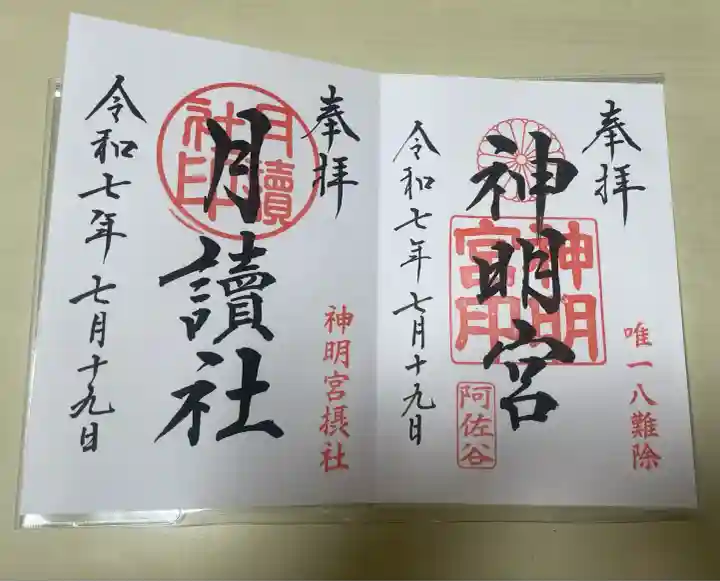 奉拝
唯一八難除
神明宮
神明宮印
阿佐谷
令和七年七月十九日
奉拝
神明宮摂社
月讀社
月讀社印
令和七年七月十九日